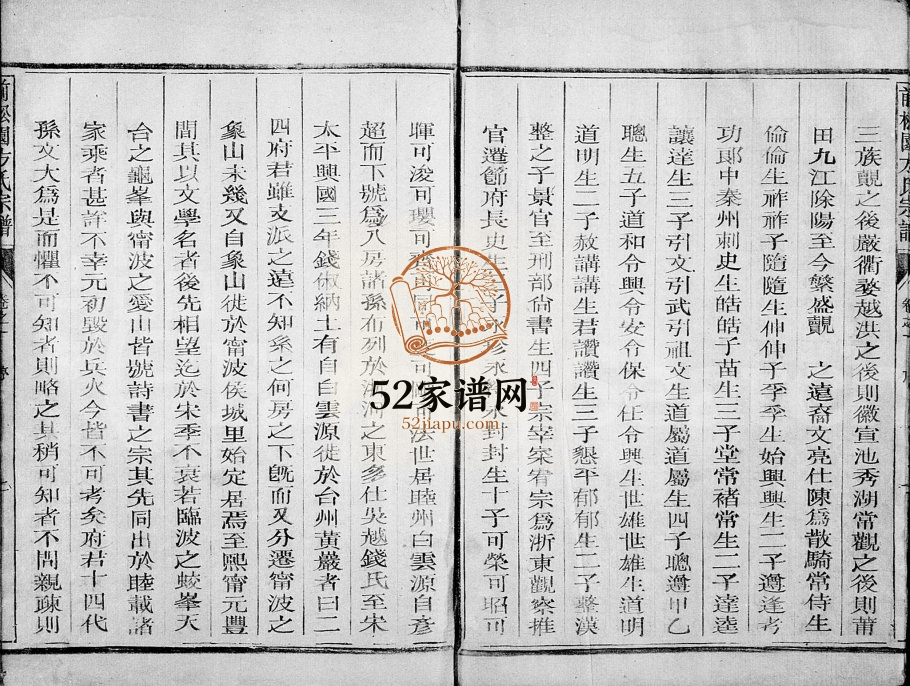 三族覿之後嚴衢婺越洪之後則徽宣池秀湖常觀之後則莆
田九江除陽至今繁盛覿 之遠裔文亮仕陳爲散騎常侍生
倫倫生祚祚子隨隨生伸伸子孚孚生始興興生二子邁逢考
功郞中秦州刺史生皓皓子苗生三子堂常褚常生二子達逵
讓達生三子引文引武引祖文生道屬道屬生四子聰邁甲乙
聰生五子道和令興令安令保令任令興生世雄世雄生道明
道明生二子赦講講生君讚讚生三子懇平郁郁生二子整漢
整之子景官至刑部尙書生四子宗宰寀宥宗爲浙東觀察推
官遷節府長史生 子永珍永 永 封封生十子可榮可昭可
暉可浚可瓔可 可 可 可 可法世居睦州白雲源自彥
超而下號爲八房諸孫布列於 之東多仕吳越錢氏至宋
太平興國三年錢俶納土有自白雲源徙於台州黃巖者曰二
四府君雖支派之遠不知孫之何房之下旣而又分遷甯波之
象山未幾又自象山徙於甯波侯城里始定居焉至熙甯元豐
間其以文學名者後先相望迄於宋季不衰若臨波之蛟峯天
台之龜峯與甯波之愛山皆號詩書之宗其先同出於睦載諸
家乘者甚詳不幸元初毀於兵火今皆不可考矣府君十四代
孫文大爲是而懼不可知者則略之其稍可知者不問親疎則
前松園方氏宗譜
卷之
序
52家谱网
52jiapu.com